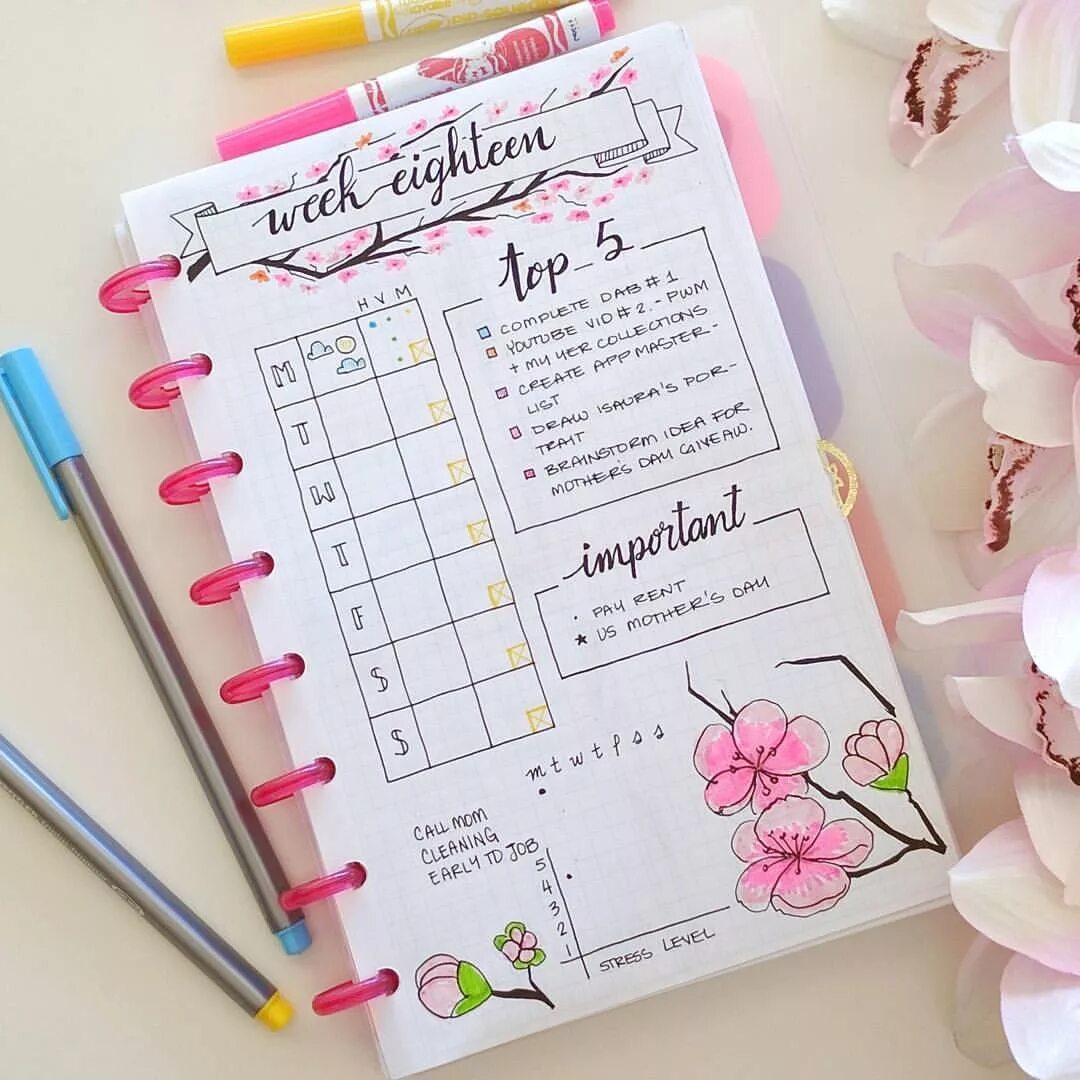 week eighteen
H V M
M
T
W
T
F
S
S
top_5
COMPLETE DAB #1
YOUTUBE VID #2. - PWM
+ MY HER COLLECTIONS
CREATE APP MASTER-
LIST
DRAW ISAURA'S POR-
TRAIT
BRAINSTORM IDEA FOR
MOTHER'S DAY GIVEAW.
important
· PAY RENT
★ US MOTHER'S DAY
m t w t f s s
CALL MOM
CLEANING
EARLY TO JOB
5
4
3
2
1
STRESS LEVEL